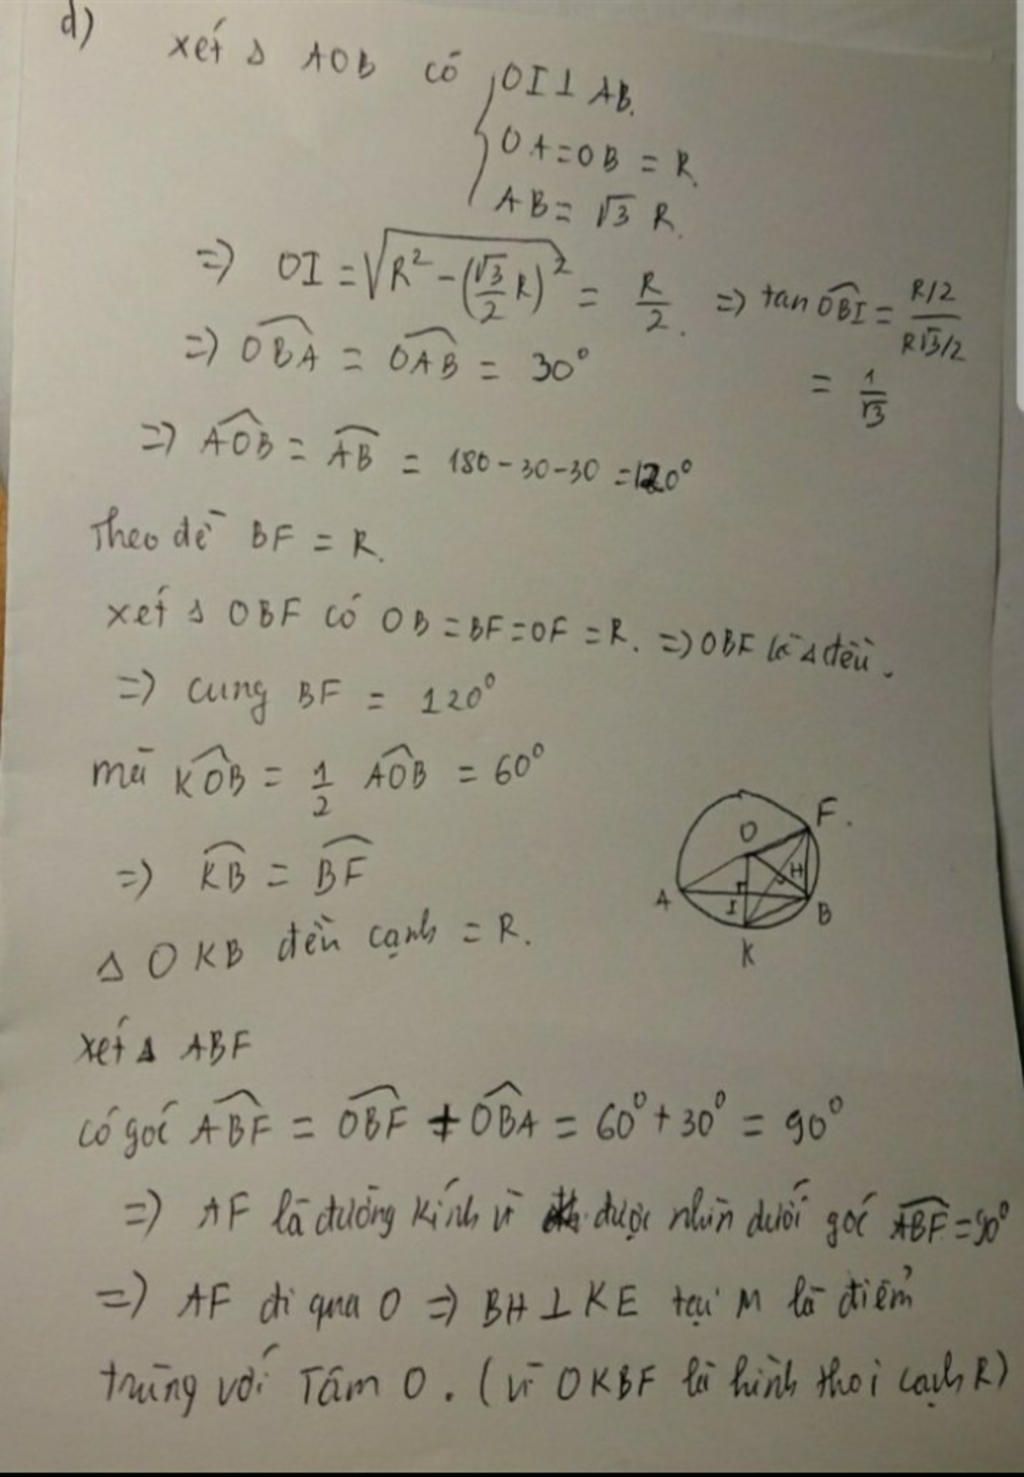 d)
xét Δ AOB có { OI ⊥ AB.
OA = OB = R.
AB = √3 R.
=> OI = √(R² - (√3/2 R)²) = R/2. => tan OBI = (R/2)/(R√3/2)
= 1/√3
=> OBA = OAB = 30°
=> AOB = AB = 180 - 30 - 30 = 120°
Theo đề BF = R.
xét Δ OBF có OB = BF = OF = R. => OBF là Δ đều.
=> cung BF = 120°
mà KOB = 1/2 AOB = 60°
=> KB = BF
Δ OKB đều cạnh = R.
F.
O
H
A
I
B
K
xét Δ ABF
có góc ABF = OBF + OBA = 60° + 30° = 90°
=> AF là đường kính vì được nhìn dưới góc ABF = 90°
=> AF đi qua O => BH ⊥ KE tại M là điểm
trùng với Tâm O. (vì OKBF là hình thoi cạnh R)